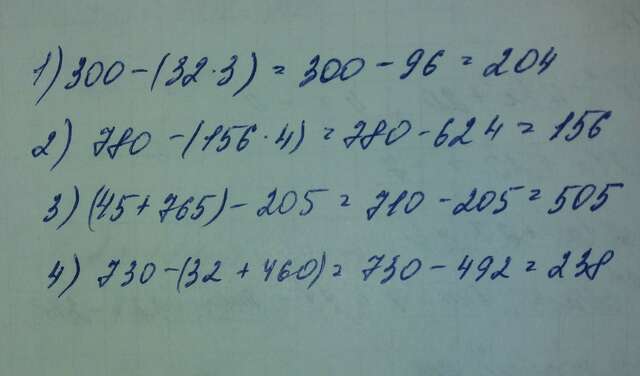 1) 300 - (32 · 3) = 300 - 96 = 204
2) 780 - (156 · 4) = 780 - 624 = 156
3) (45 + 765) - 205 = 710 - 205 = 505
4) 730 - (32 + 460) = 730 - 492 = 238